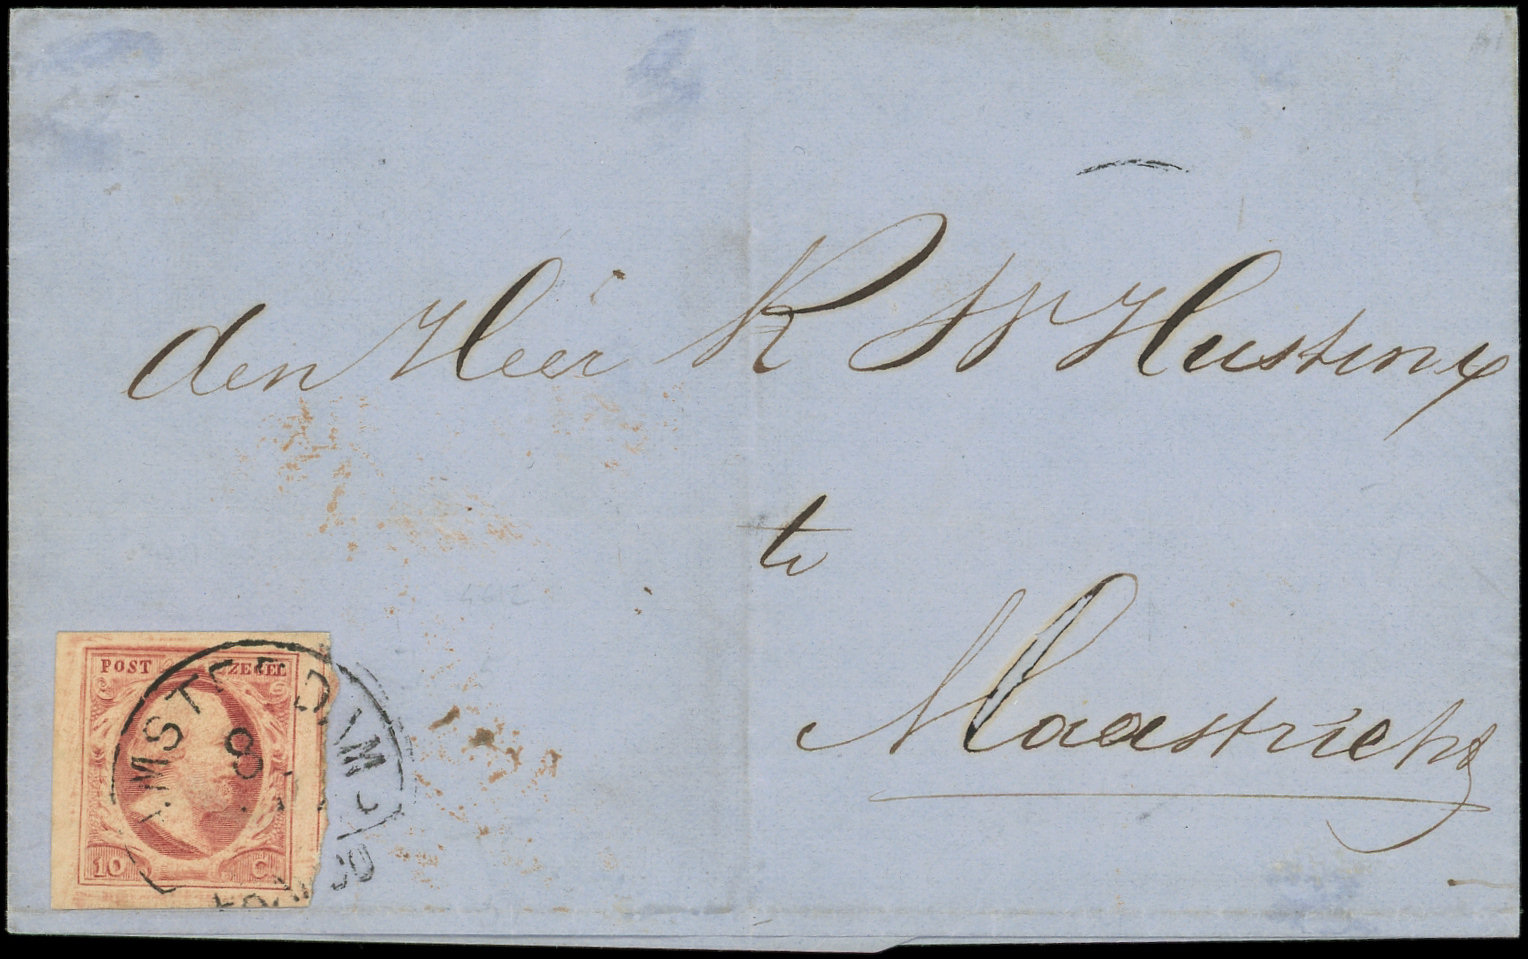 den Heer K W Hustinx
te
Maastricht
POST ZEGEL
AMSTERDAM
8
FRANCO
10 C